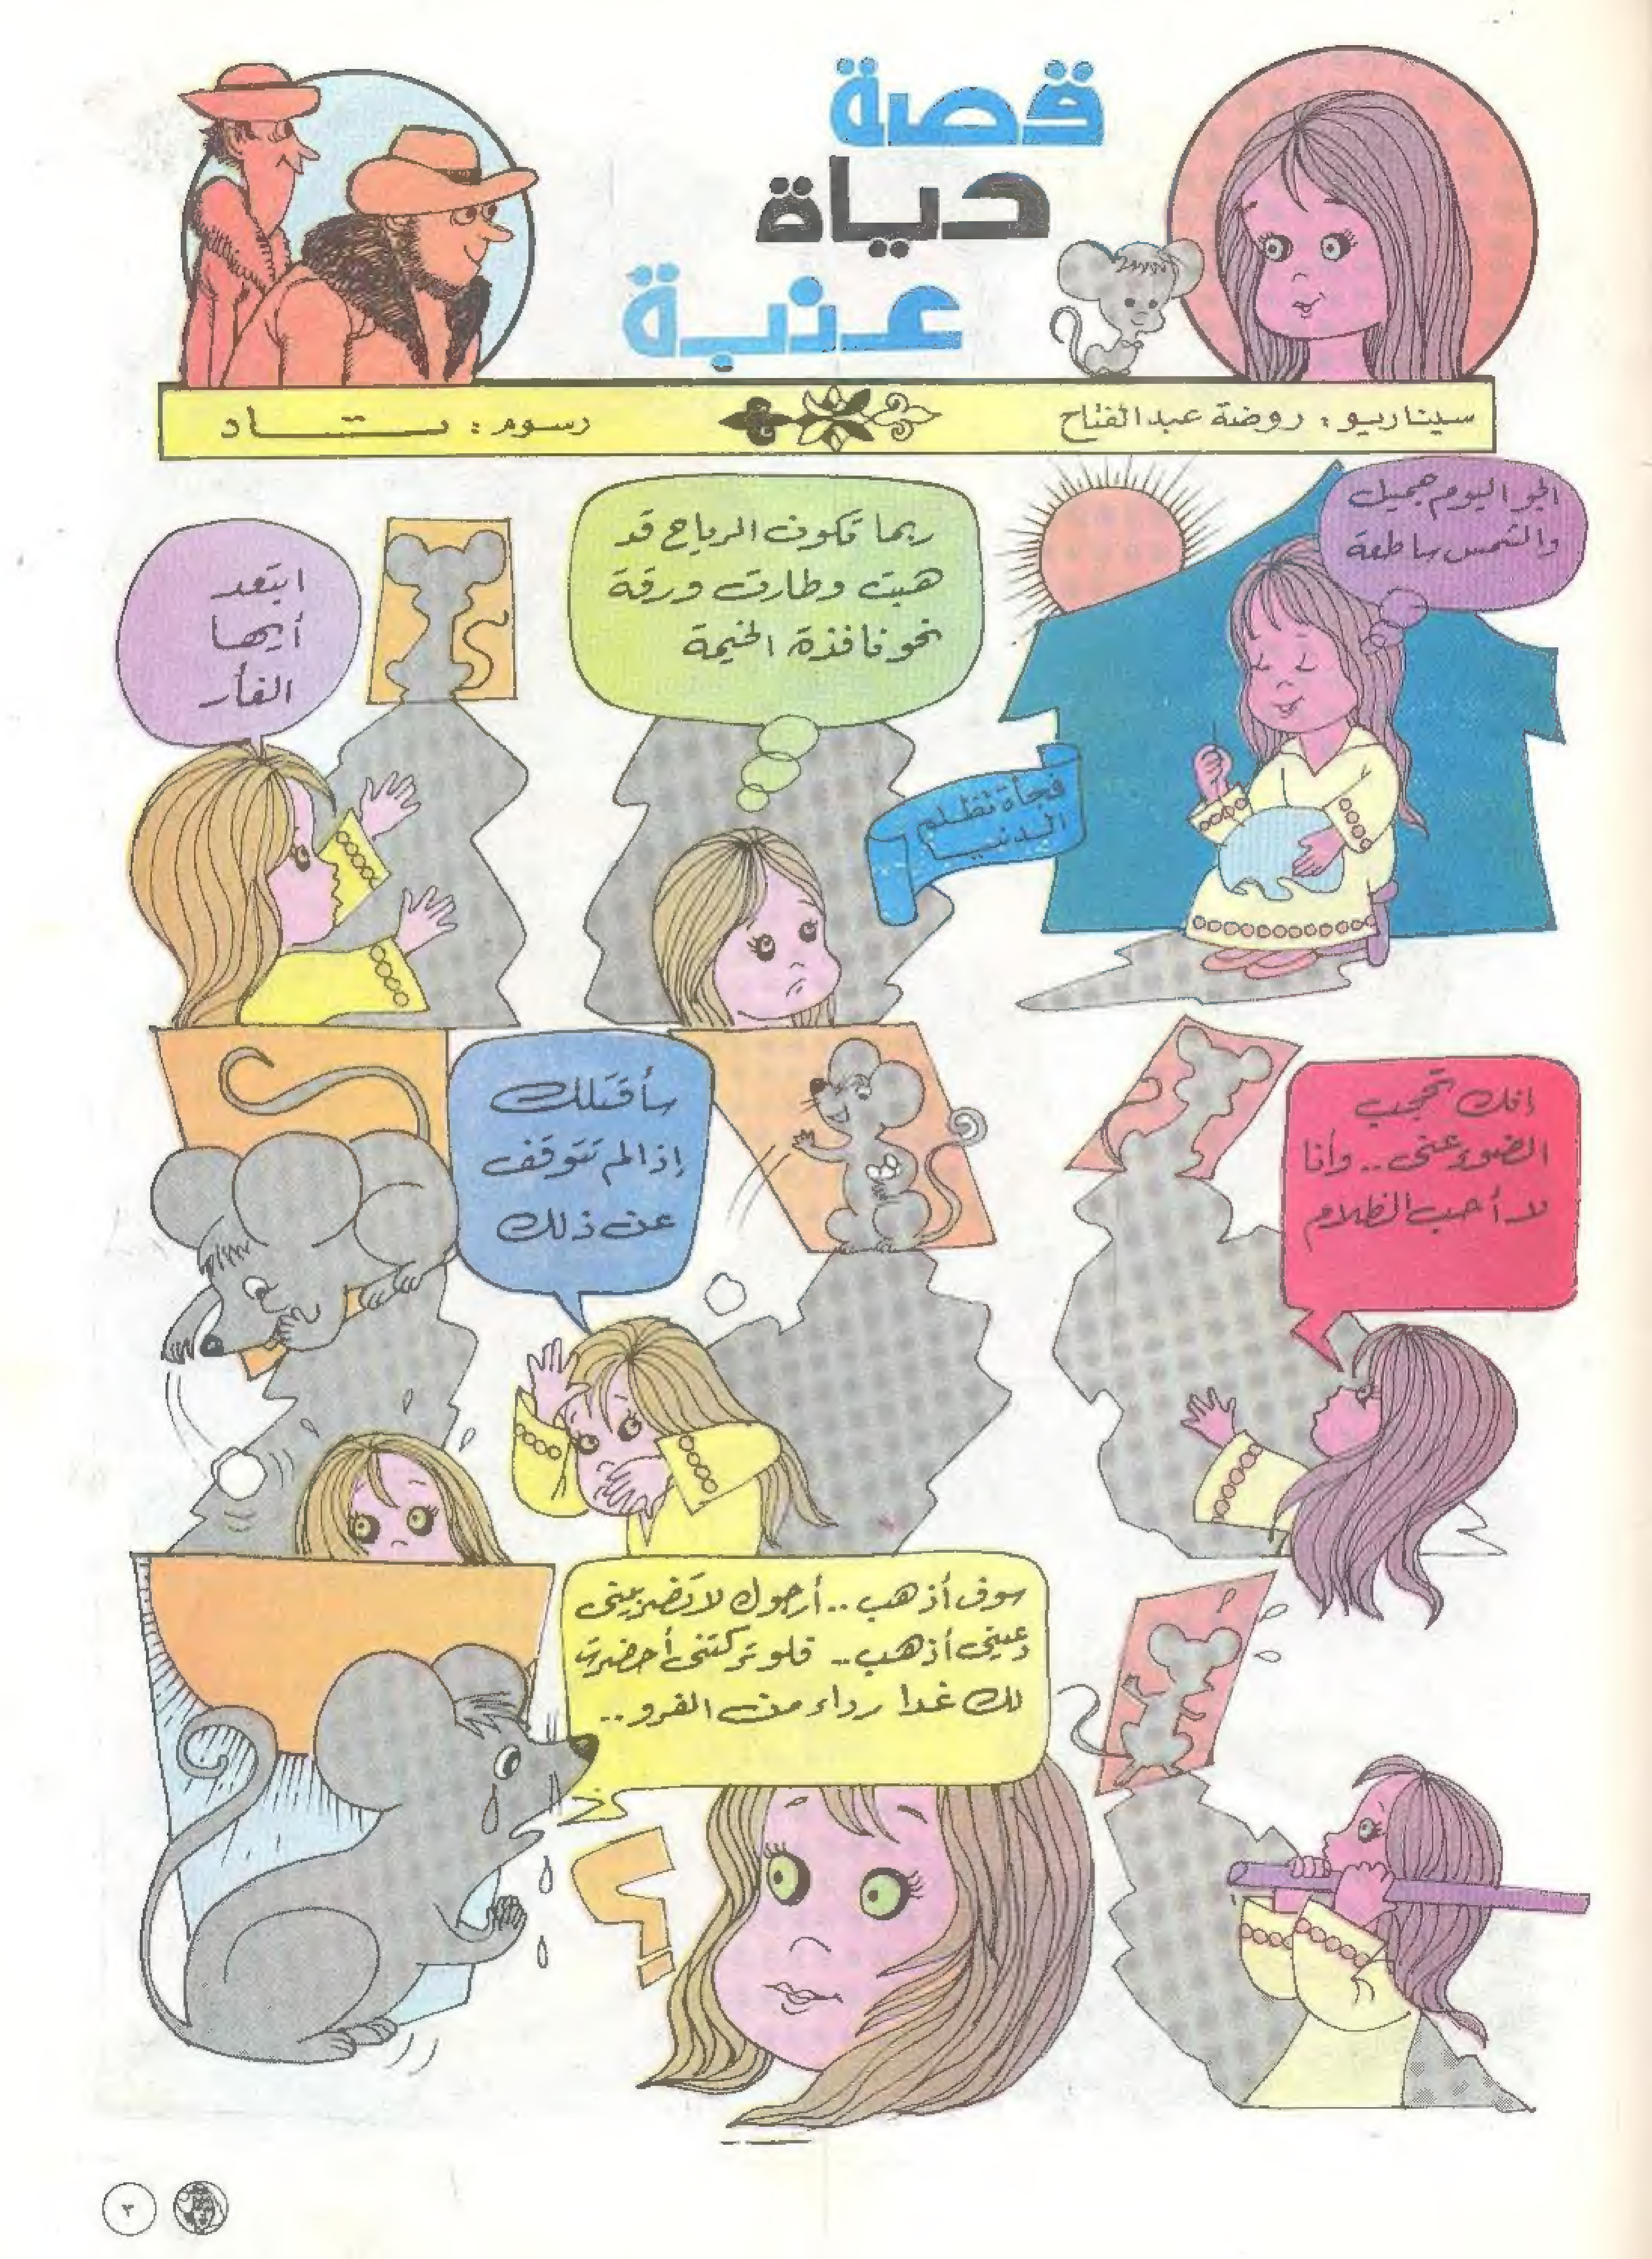 قصة
حياة
عنبة
سيناريو: روضة عبدالفتاح
رسوم: تاد
الجو اليوم جميل
والشمس ساطعة
فجأة تظلم
الدنيا
ربما تكون الرياح قد
هبت وطارت ورقة
نحو نافذة الخيمة
ابتعد
أيها
الفأر
إنك تحجب
الضوء عني.. وأنا
لا أحب الظلام
سأقتلك
إذا لم تتوقف
عن ذلك
سوف أذهب.. أرجوك لا تضربيني
دعيني أذهب.. فلو تركتني أحضرت
لك غدا رداء من الفرو..
٣